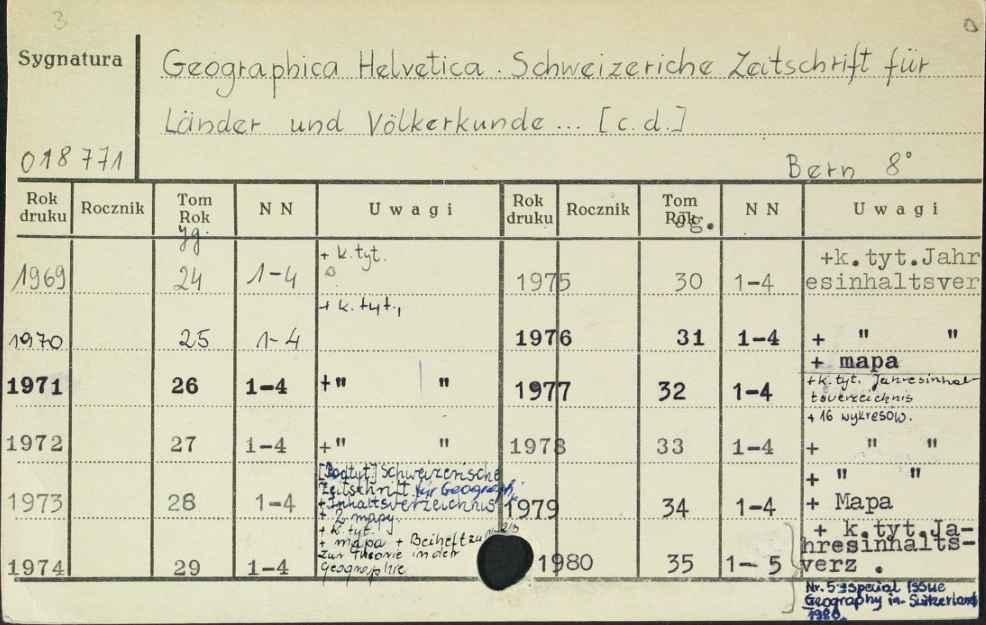 3
Sygnatura Geographica Helvetica. Schweizeriche Zeitschrift für
Länder und Völkerkunde ... [c.d.]
018771 Bern 8°
Rok druku Rocznik Tom Rok NN Uwagi Rok druku Rocznik Tom Rok NN Uwagi
1969 24 1-4 + k.tyt.
1970 25 1-4 + k.tyt.,
1971 26 1-4 +" "
1972 27 1-4 +" "
1973 28 1-4 [Podtyt.] Schweizerische
Zeitschrift für Geograph.
+ Inhaltsverzeichnis
+ 2 mapy
1974 29 1-4 + k.tyt.
+ mapa + Beiheft zu
zur Theorie in der
Geographie
1975 30 1-4 +k.tyt.Jahr
esinhaltsver
1976 31 1-4 + " "
+ mapa
1977 32 1-4 +k.tyt. Jahresinhal-
tsverzeichnis
+ 16 wykresów.
1978 33 1-4 + " "
1979 34 1-4 + " "
+ Mapa
1980 35 1-5 + k.tyt.Ja-
hresinhalts-
verz.
Nr. 5 special issue
Geography in Switzerland
1980.